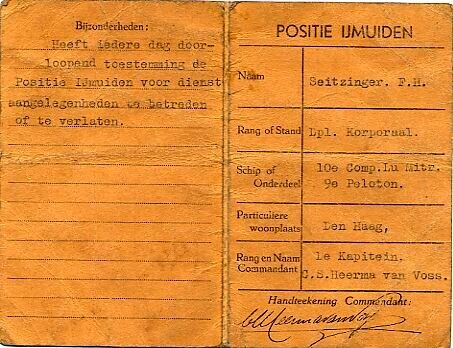 Bijzonderheden:
Heeft iedere dag door-
loopend toestemming de
Positie IJmuiden voor dienst
aangelegenheden te betreden
of te verlaten.
POSITIE IJMUIDEN
Naam
Seitzinger. F.H.
Rang of Stand
Dpl. Korporaal.
Schip of
Onderdeel
10e Comp.Lu Mitr.
9e Peloton.
Particuliere
woonplaats
Den Haag,
Rang en Naam
Commandant
1e Kapitein.
C.S.Heerma van Voss.
Handteekening Commandant: